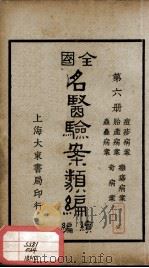 第六册
痘疹病案
胎產病案 奇病案
蟲蠱病案
全國名醫驗案類編
續編
上海大東書局印行